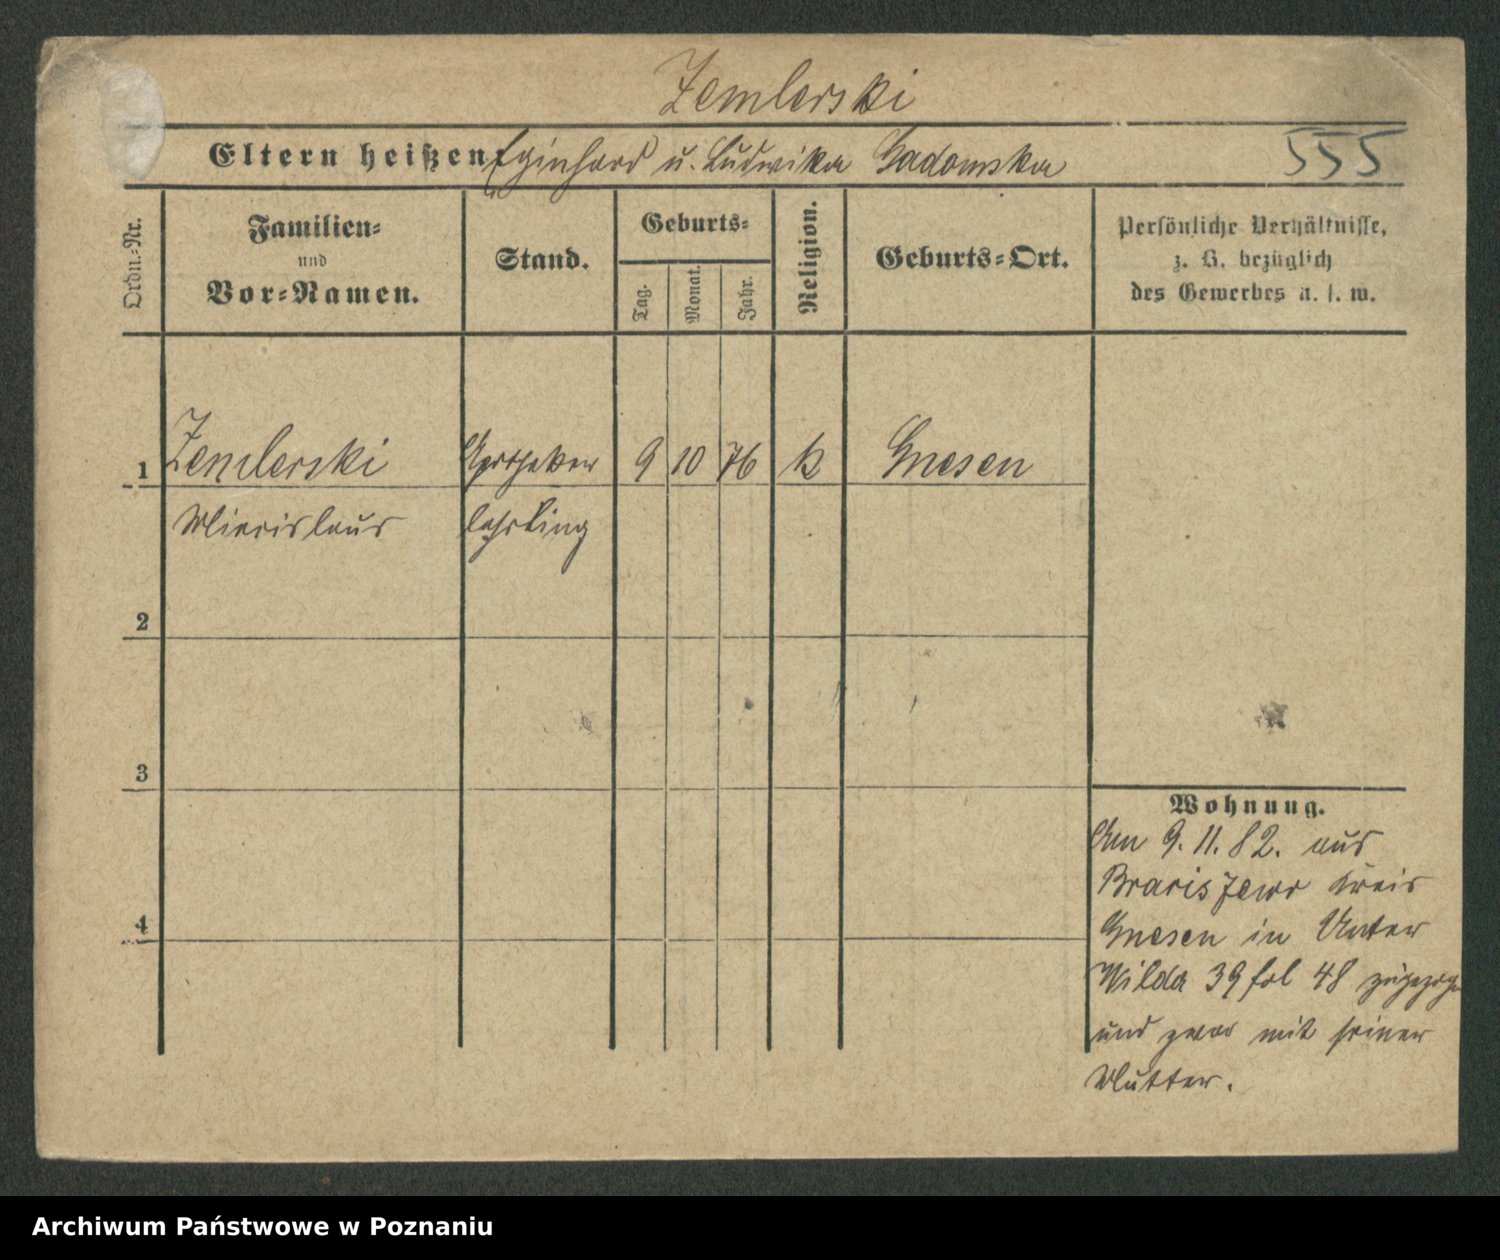 Zemlerski
Eltern heißen: Eginhard u. Ludwika Gadomska
555
Ordn.=Nr.
Familien=
und
Vor=Namen.
Stand.
Geburts=
Tag.
Monat.
Jahr.
Religion.
Geburts=Ort.
Persönliche Verhältnisse,
z. B. bezüglich
des Gewerbes u. s. w.
1 Zemlerski Apotheker 9 10 76 k Gnesen
Miecislaus lehrling
2
3
4
Wohnung.
Am 9.11.82. aus
Kreis
Gnesen in Unter
Wilda 39 fol 48 zugezogen
und zwar mit seiner
Mutter.
Archiwum Państwowe w Poznaniu